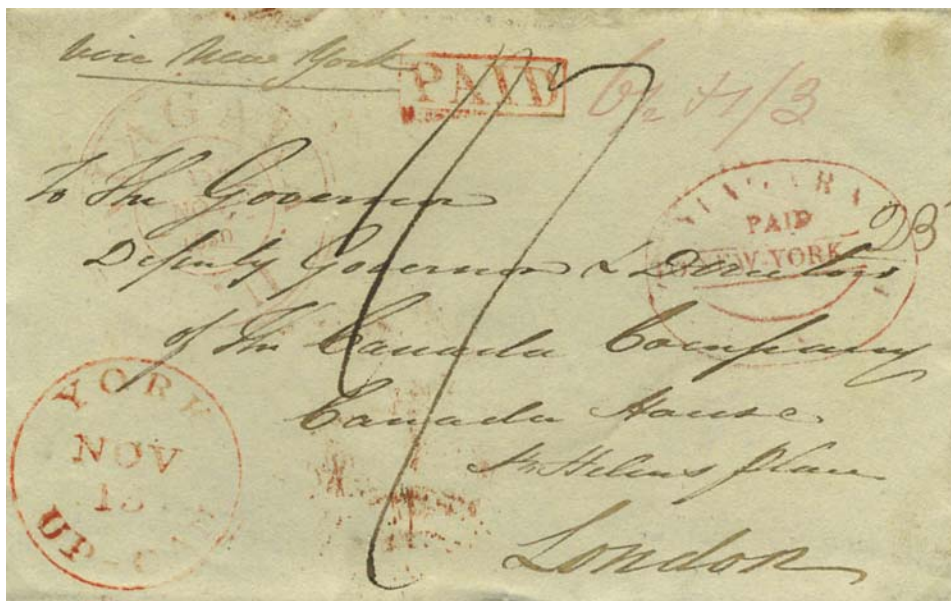 via New York
PAID
6½ + 1/3
NIAGARA
PAID
NEW-YORK
NOV
To The Governor
Deputy Governor & Directors
of The Canada Company
Canada House
St Helens place
London
YORK
NOV
UP-CA